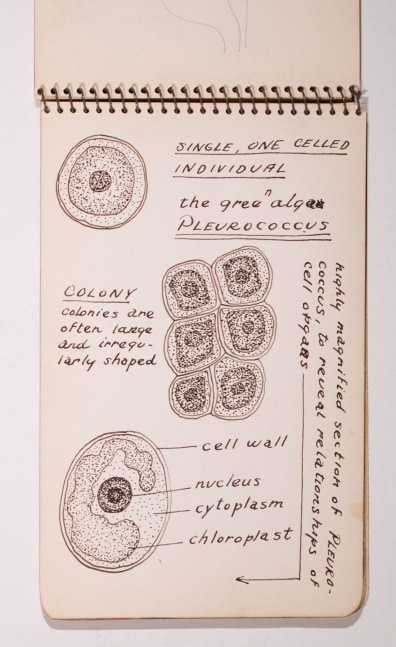 SINGLE, ONE CELLED
INDIVIDUAL
the green algae
PLEUROCOCCUS
COLONY
colonies are
often large
and irregu-
larly shaped
highly magnified section of PLEURO-
coccus, to reveal relationships of
cell organs
cell wall
nucleus
cytoplasm
chloroplast